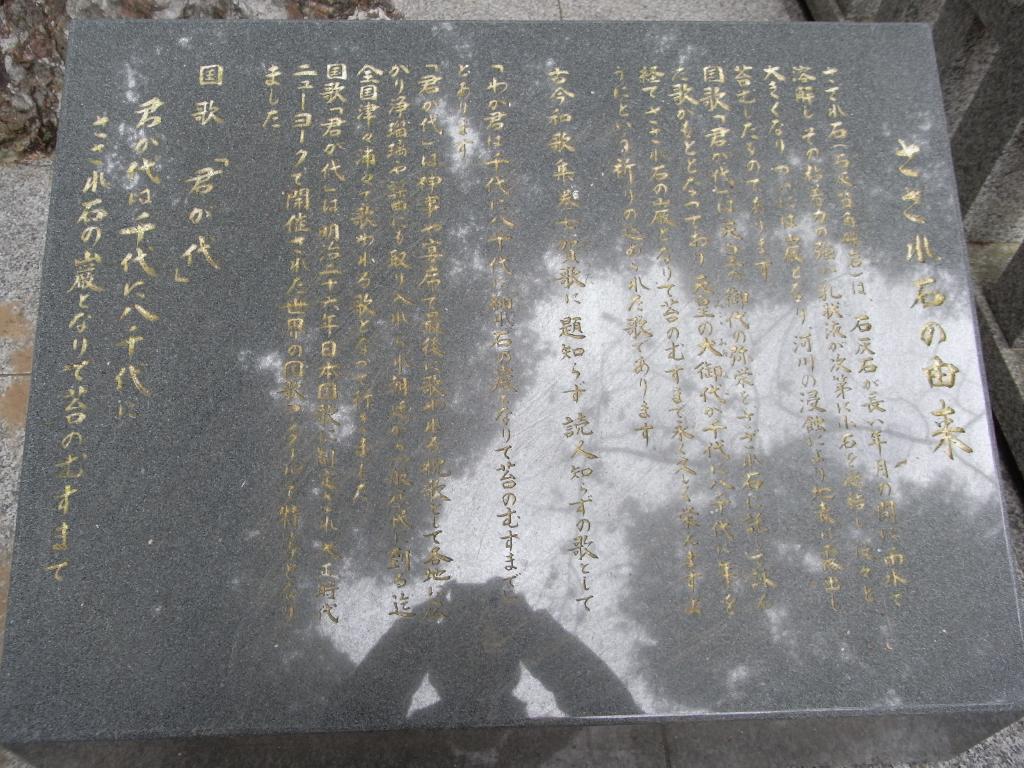 さざれ石の由来
さざれ石(石灰質角礫岩)は、石灰石が長い年月の間に雨水で
溶解し その粘着力の強い乳状液が次第に小石を凝結し 段々と
大きくなり ついには巌となり 河川の浸蝕により地表に露出し
苔むしたものであります
国歌「君が代」は 御代の栄とさざれ石に
た歌がもととなっており 天皇の大御代が千代に八千代に年を
経て さざれ石の巌となりて苔のむすまで永久に栄えますよ
うにという祈りの込められた歌であります
古今和歌集巻七賀歌に題知らず 読人知らずの歌として
「わが君は千代に八千代に細石の巌となりて苔のむすまで」
とあります
「君が代」は神事や宴席で最後に歌われる祝歌として各地に広
がり浄瑠璃や謡曲にも取り入れられ 代に到る迄
全国津々浦々で歌われる歌となって行きました
国歌「君が代」は明治二十六年日本国歌に制定され 大正時代
ニューヨークで開催された世界の国歌コンクールで特賞となり
ました
国歌 「君が代」
君が代は千代に八千代に
さざれ石の巌となりて苔のむすまで